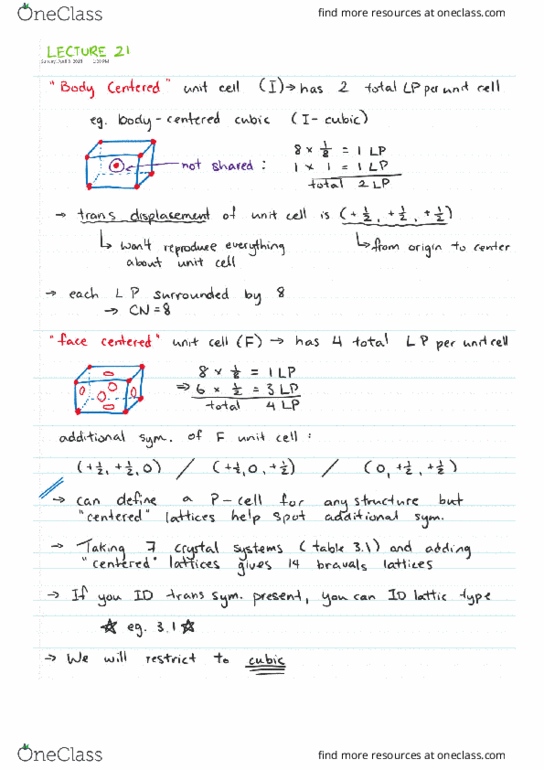 OneClass
find more resources at oneclass.com
LECTURE 21
"Body Centered" unit cell (I) → has 2 total LP per unit cell
eg. body-centered cubic (I-cubic)
8 × 1/8 = 1 LP
not shared : 1 × 1 = 1 LP
total 2 LP
→ trans displasement of unit cell is (+1/2, +1/2, +1/2)
↳ won't reproduce everything ↳ from origin to center
about unit cell
→ each LP surrounded by 8
→ CN = 8
"face centered" unit cell (F) → has 4 total LP per unit cell
8 × 1/8 = 1 LP
⇒ 6 × 1/2 = 3 LP
total 4 LP
additional sym. of F unit cell :
(+1/2, +1/2, 0) / (+1/2, 0, +1/2) / (0, +1/2, +1/2)
→ can define a P-cell for any structure but
"centered" lattices help spot additional sym.
→ Taking 7 crystal systems (table 3.1) and adding
"centered" lattices gives 14 bravais lattices
→ If you ID trans sym. present, you can ID lattic type
☆ eg. 3.1 ☆
→ We will restrict to cubic
OneClass
find more resources at oneclass.com